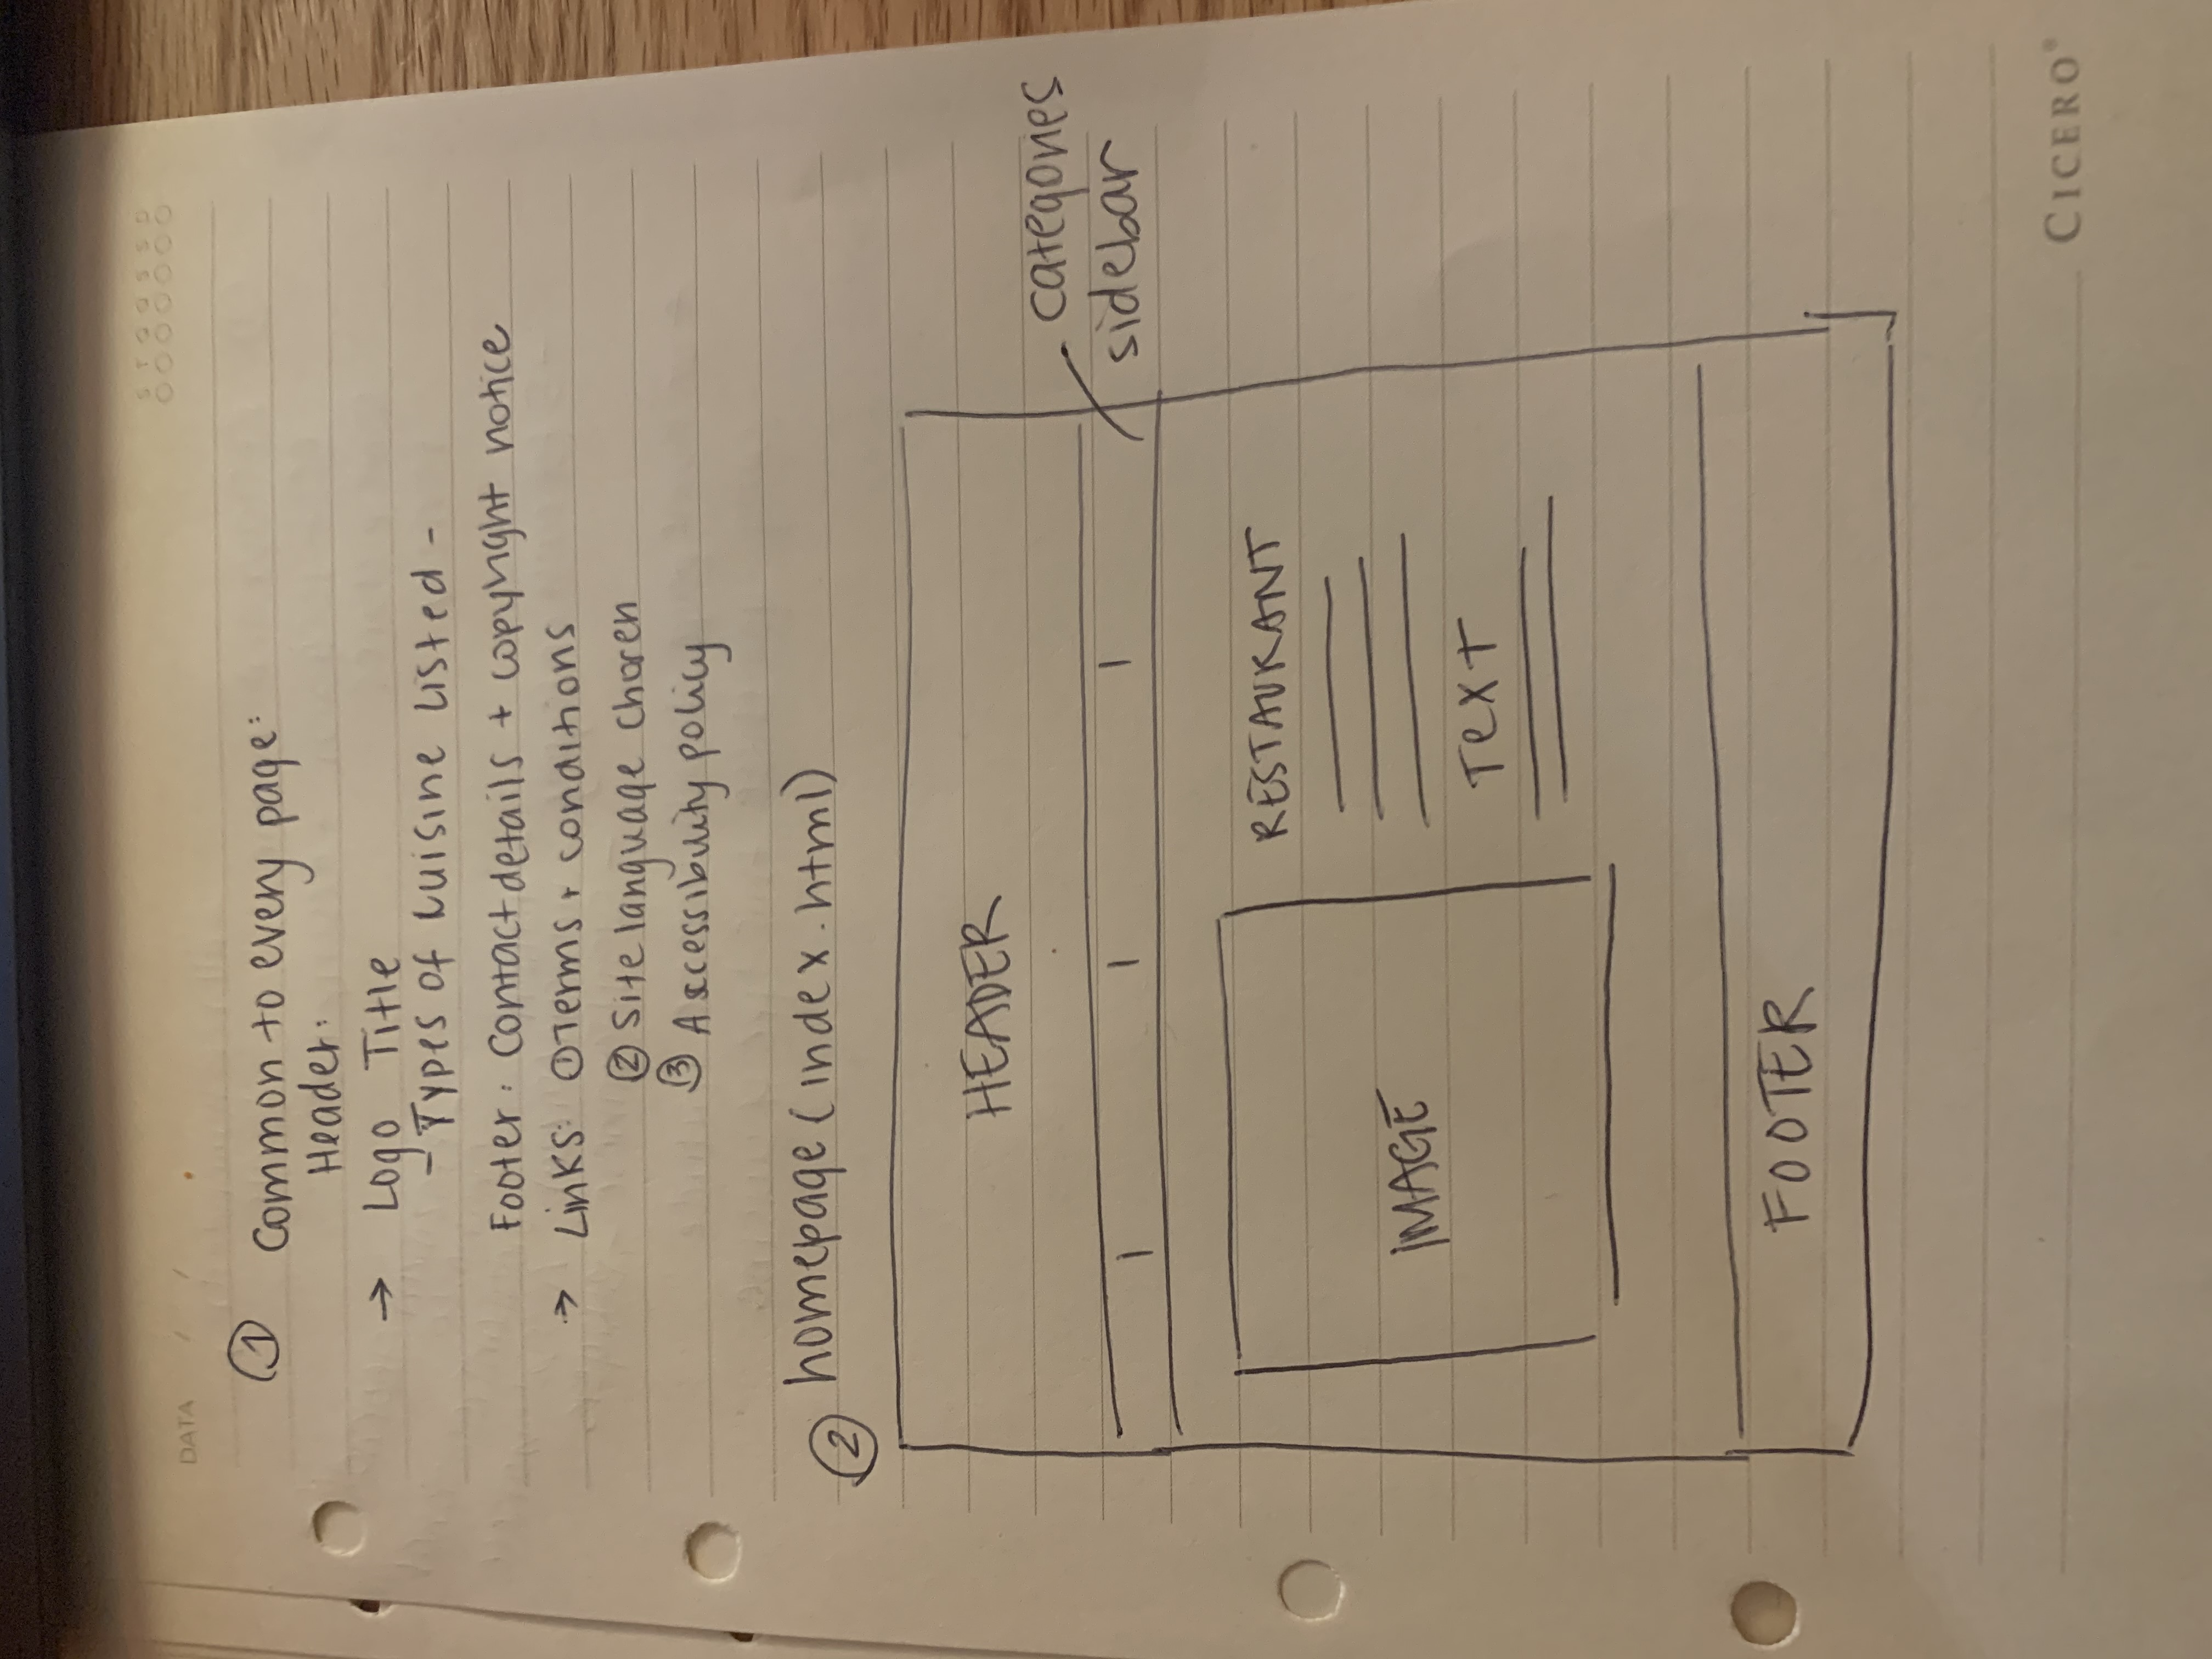 DATA / /
S T Q Q S S D
① Common to every page:
Header:
→ Logo Title
- Types of cuisine Listed -
Footer: Contact details + copyright notice
→ Links: ① Terms + conditions
② Site language choren
③ Accessibility policy
② homepage (index.html)
HEADER
categories
sidebar
RESTAURANT
IMAGE
TexT
FOOTER
CICERO®